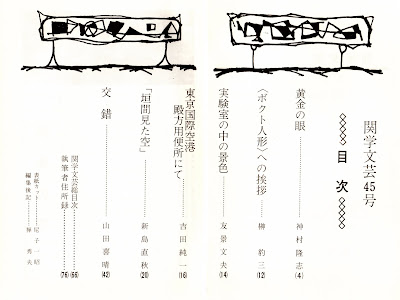 関学文芸45号
目次
黄金の眼 神村隆志 (4)
〈ボクト人形〉への挨拶 榊豹三 (12)
実験室の中の景色 友景文夫 (14)
東京国際空港
殿方用便所にて 吉田純一 (16)
「垣間見た空」 新島直秋 (20)
交錯 山田喜晴 (42)
関学文芸総目次 (66)
執筆者住所録 (76)
表紙カット 尼子一昭
編集後記 秀夫